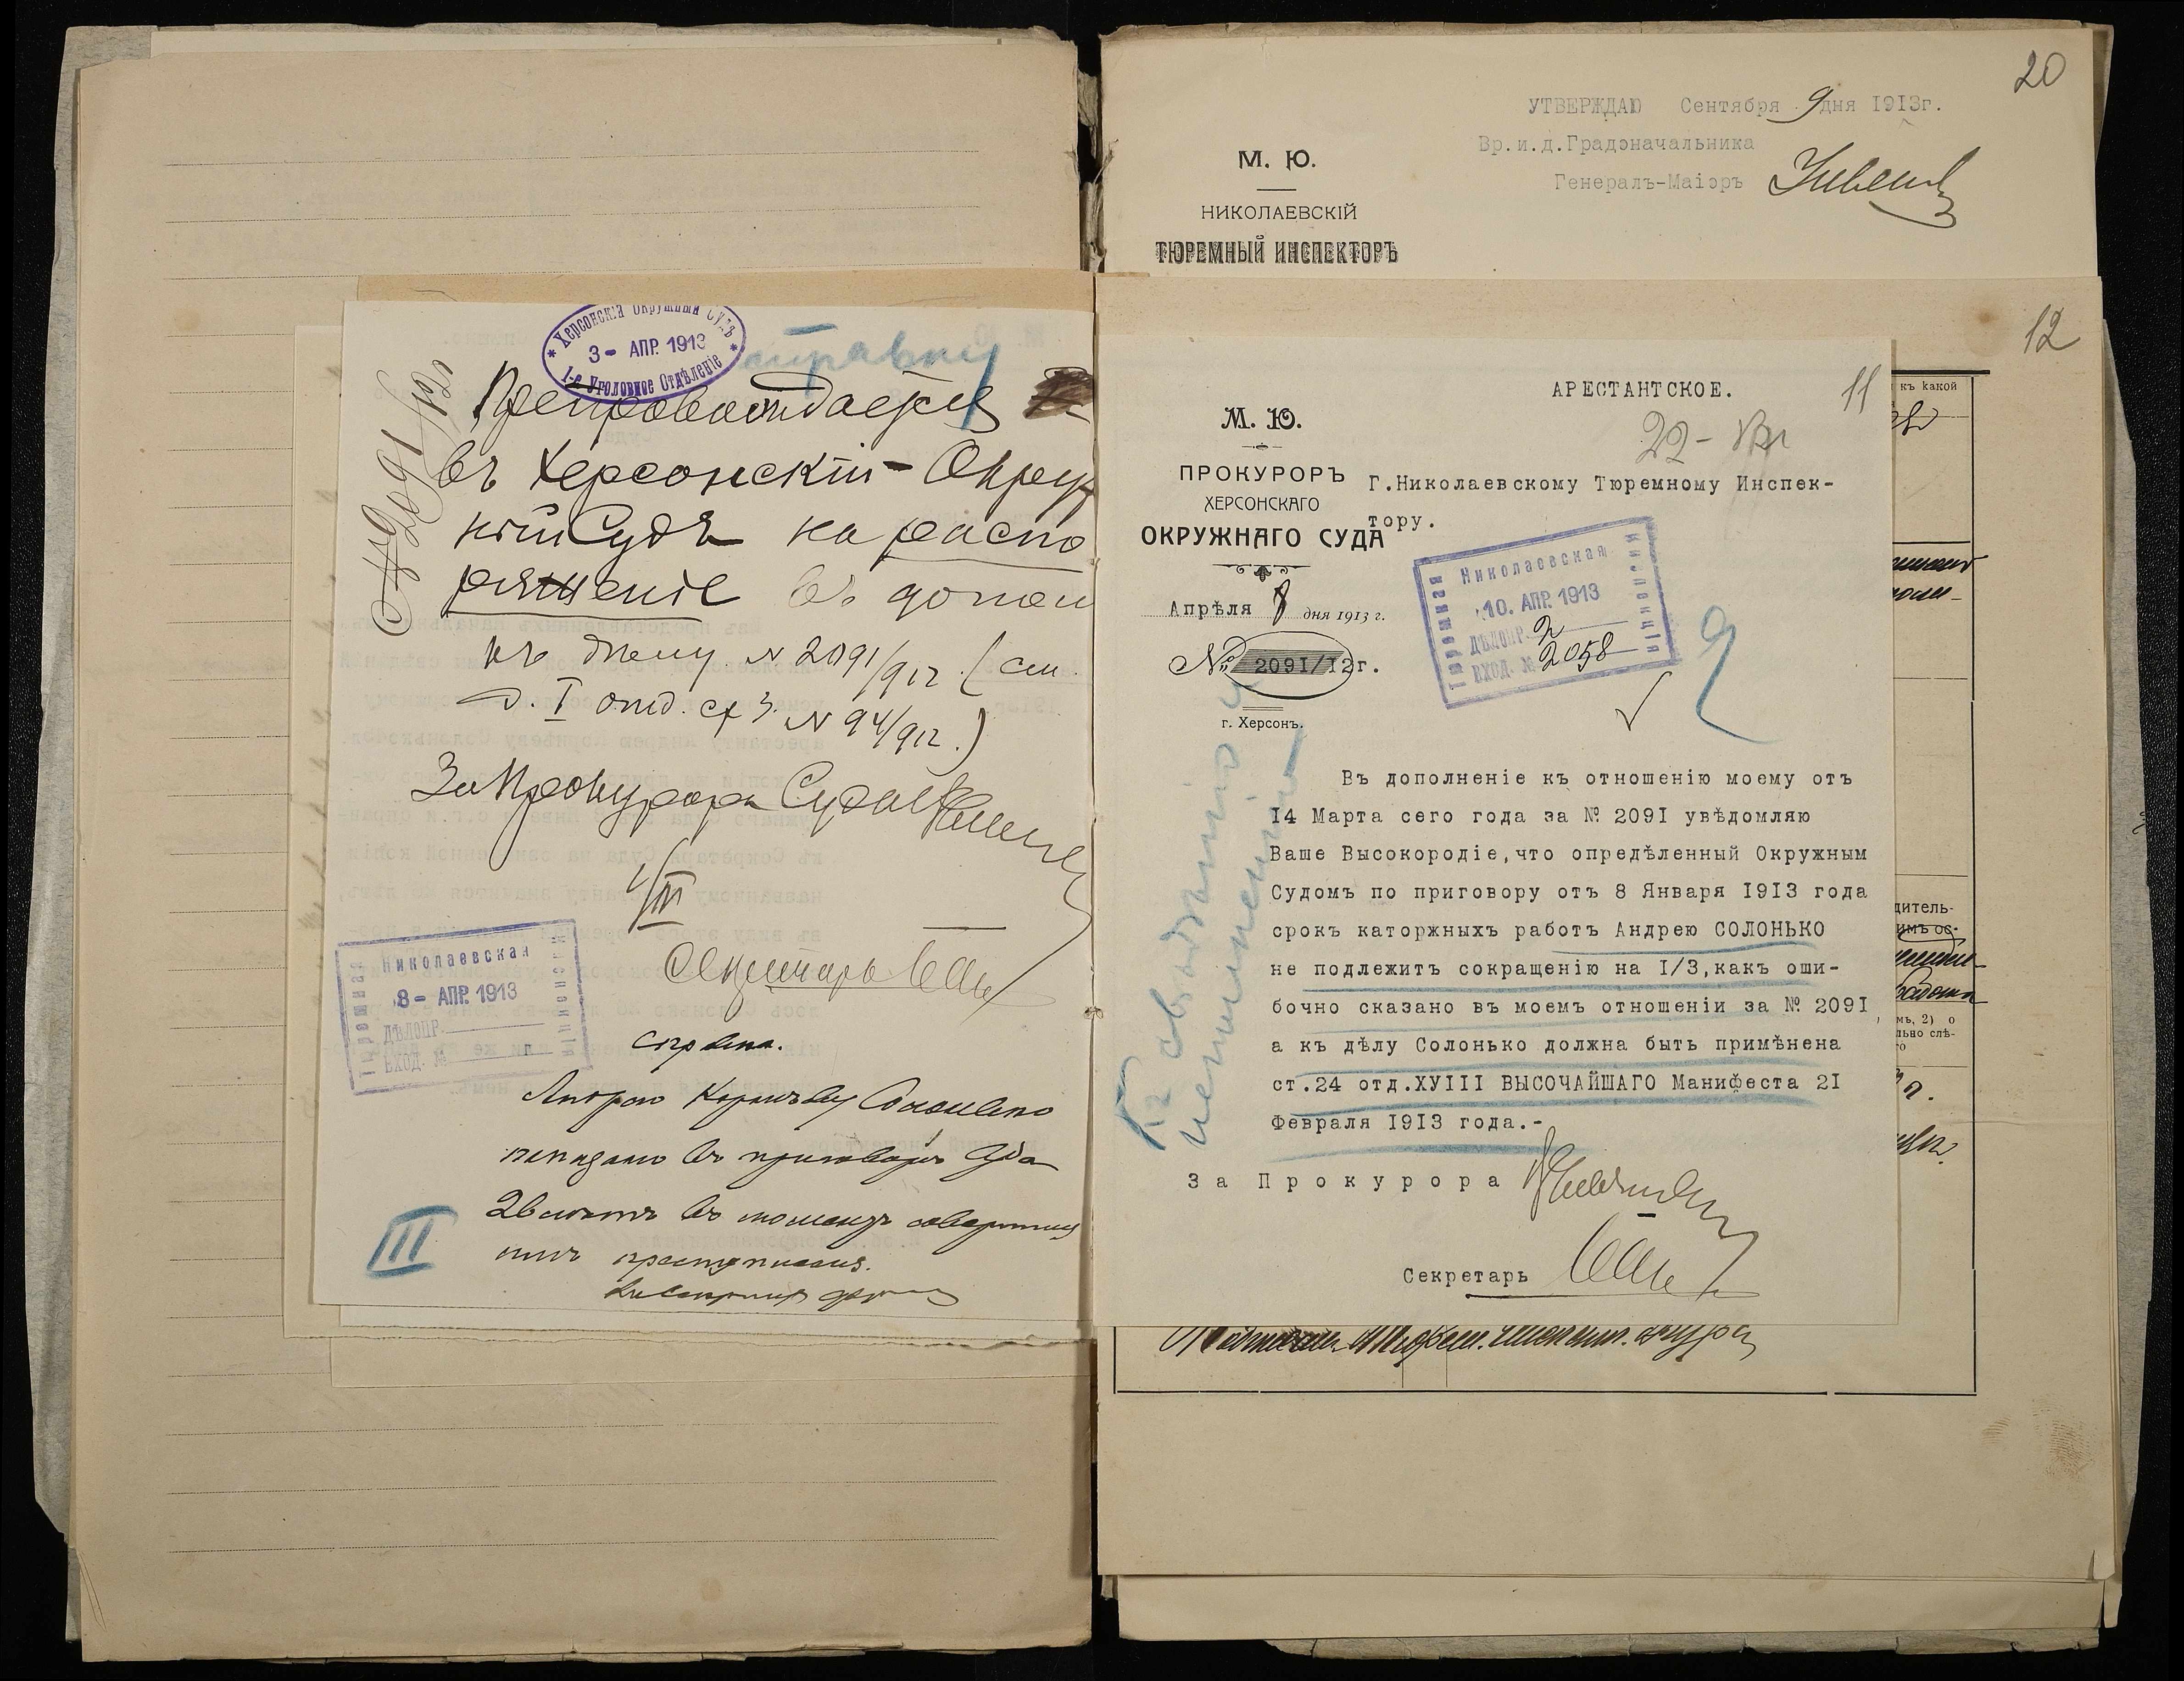 Херсонскій Окружный Судъ
3- АПР. 1913
1-е Уголовное Отдѣленіе
справку
№ 2091/12 г.
Препровождается
въ Херсонскій Окруж
ный Судъ на распо
ряженіе въ допол
къ дѣлу № 2091/912 (см.
д. I отд. ст 3. № 94/912.)
За Прокурора Суда
1/III
Секретарь
Николаевская
Тюремная
Инспекція
8- АПР. 1913
ДѢЛОПР.
ВХОД. №
Справка.
Андрею Корнѣеву Солонько
показано въ приговорѣ Суда
26 лѣтъ въ моментъ совершенія
имъ преступленія.
III
20
УТВЕРЖДАЮ Сентября 9 дня 1913г.
Вр.и.д.Градоначальника
Генералъ-Маіоръ
М. Ю.
НИКОЛАЕВСКІЙ
ТЮРЕМНЫЙ ИНСПЕКТОРЪ
12
къ какой
дитель-
имъ ос-
мъ, 2) о
льно слѣ-
го
11
АРЕСТАНТСКОЕ.
22-
М. Ю.
ПРОКУРОРЪ
ХЕРСОНСКАГО
ОКРУЖНАГО СУДА
Апрѣля 8 дня 1913 г.
№ 2091/12г.
г. Херсонъ.
Г.Николаевскому Тюремному Инспек-
тору.
Николаевская
Тюремная
Инспекція
10. АПР. 1913
ДѢЛОПР. 2
ВХОД. № 2058
Къ свѣдѣнію и
исполненію
Въ дополненіе къ отношенію моему отъ
14 Марта сего года за № 2091 увѣдомляю
Ваше Высокородіе,что опредѣленный Окружным
Судомъ по приговору отъ 8 Января 1913 года
срокъ каторжныхъ работъ Андрею СОЛОНЬКО
не подлежитъ сокращенію на 1/3,какъ оши-
бочно сказано въ моемъ отношеніи за № 2091,
а къ дѣлу Солонько должна быть примѣнена
ст.24 отд.ХУIII ВЫСОЧАЙШАГО Манифеста 21
Февраля 1913 года.-
За Прокурора
Секретарь